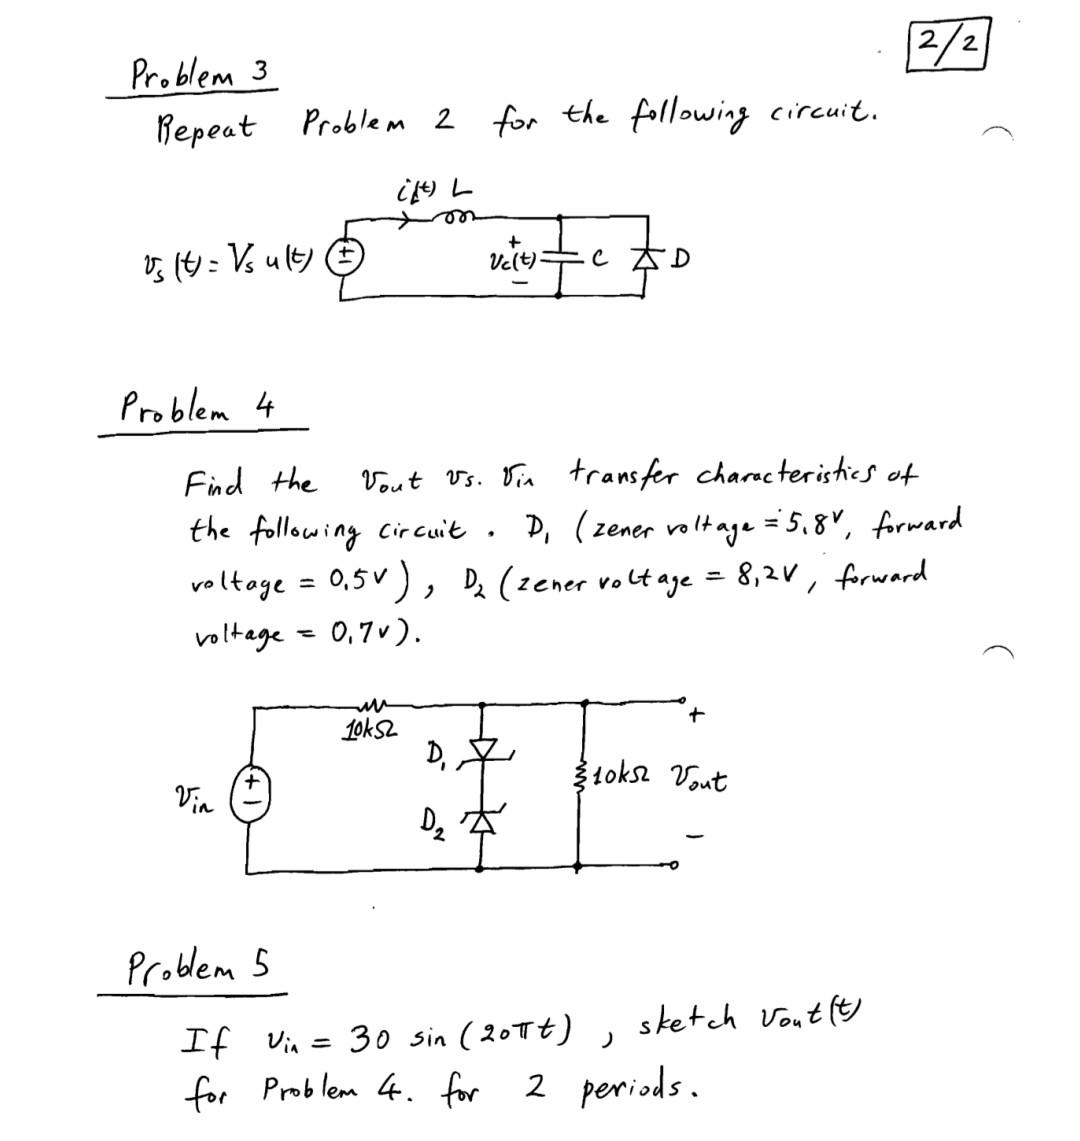 2/2
Problem 3
Repeat Problem 2 for the following circuit.
i(t) L
vs(t) = Vs u(t)
+
Vc(t)
−
C
D
Problem 4
Find the Vout vs. Vin transfer characteristics of
the following circuit. D1 (zener voltage = 5,8V, forward
voltage = 0,5V), D2 (zener voltage = 8,2V, forward
voltage = 0,7V).
10kΩ
D1
D2
Vin
+
−
10kΩ
+
Vout
−
Problem 5
If Vin = 30 sin (20πt), sketch Vout(t)
for Problem 4. for 2 periods.